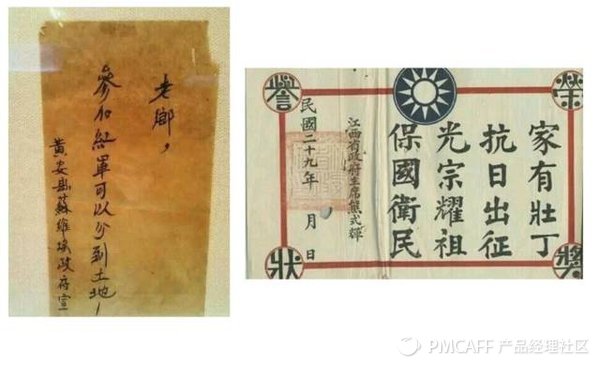 老鄉，
參加紅軍可以分到土地！
黃安縣蘇維埃政府宣
榮譽
獎狀
家有壯丁
抗日出征
光宗耀祖
保國衛民
江西省政府主席熊式輝
民國二十九年 月 日
PMCAFF 产品经理社区